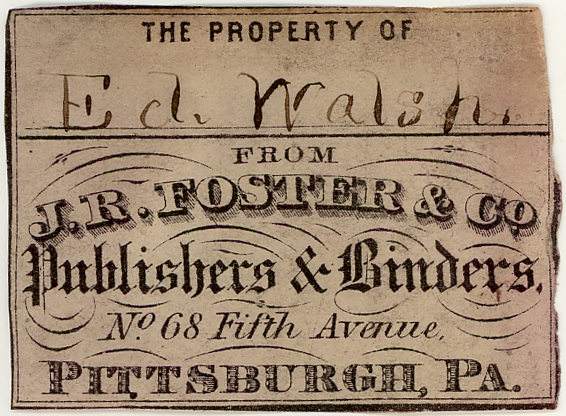 THE PROPERTY OF
Ed. Walsh.
FROM
J. R. FOSTER & Co
Publishers & Binders,
No 68 Fifth Avenue,
PITTSBURGH, PA.